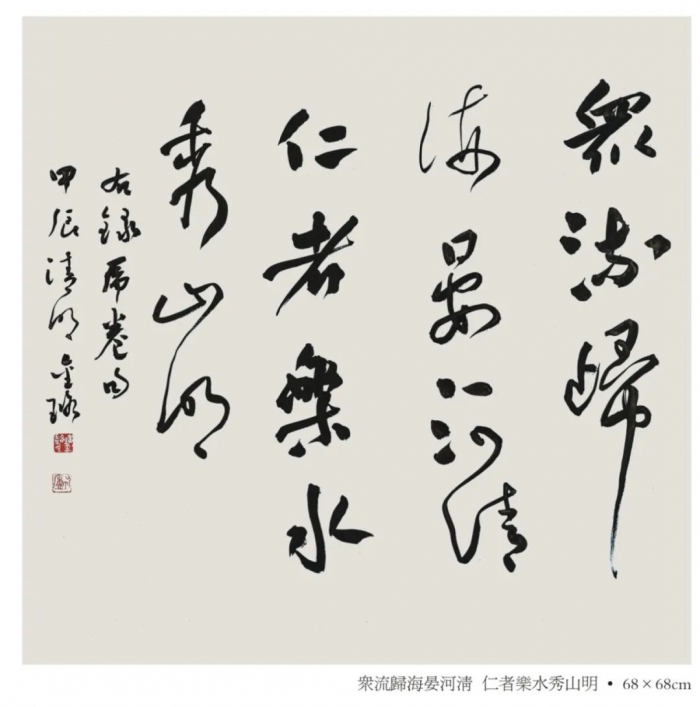 衆流歸
海晏河清
仁者樂水
秀山明
右録席卷句
甲辰清明金珞
衆流歸海晏河淸 仁者樂水秀山明 • 68×68cm